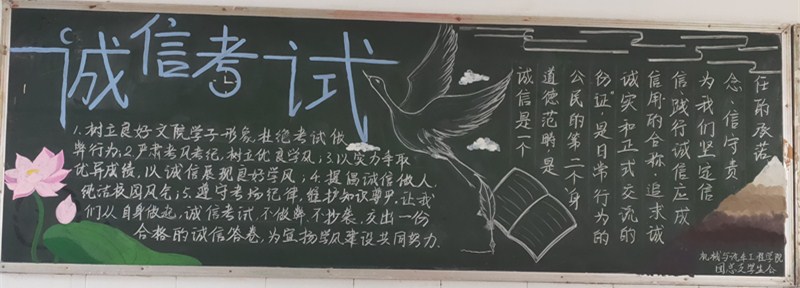 诚信考试
1.树立良好文院学子形象,杜绝考试做
弊行为;2.严肃考风考纪,树立优良学风;3.以实力争取
优异成绩,以诚信展现良好学风;4.提倡诚信做人,
纯洁校园风气;5.遵守考场纪律,维护知识尊严.让我
们从自身做起,诚信考试,不做弊,不抄袭,交出一份
合格的诚信答卷,为宣扬学风建设共同努力.
诚信是一个
道德范畴是
公民的第二个"身
份证"是日常行为的
诚实和正式交流的
信用的合称.追求诚
信践行诚信应成
为我们坚定信
念、信守责
任的底落
机械与汽车工程学院
团总支学生会